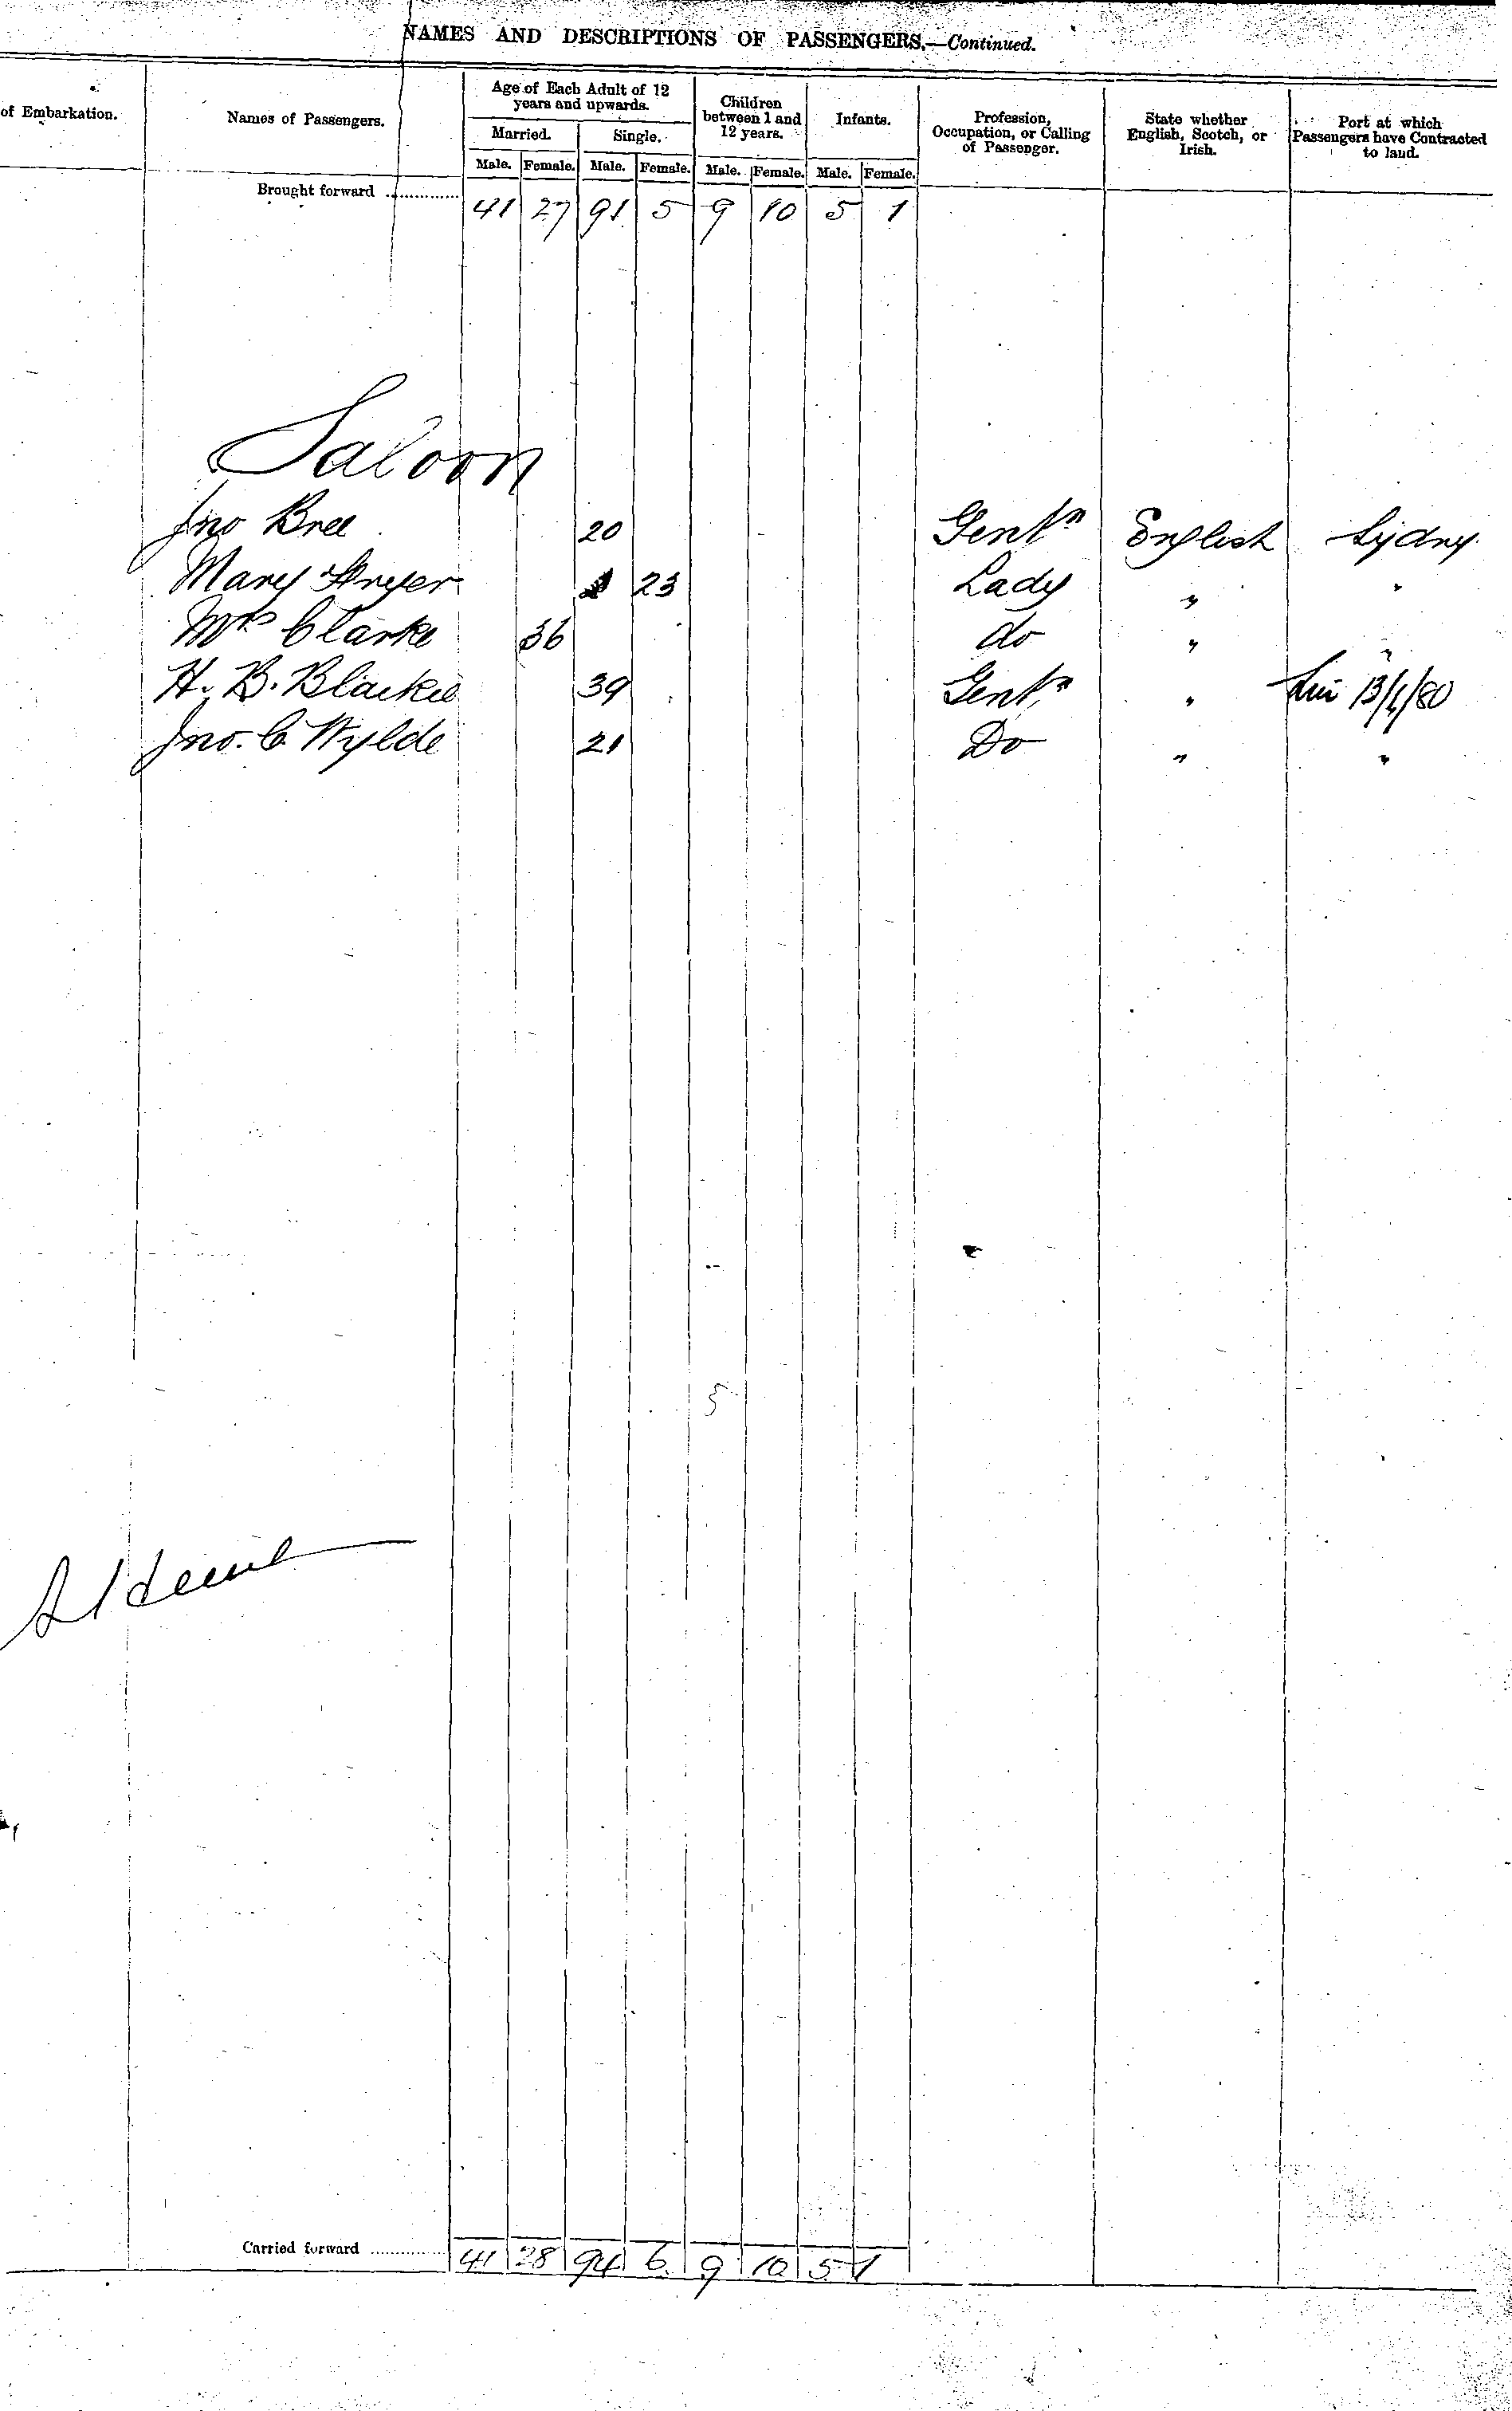 NAMES AND DESCRIPTIONS OF PASSENGERS.—Continued.
of Embarkation.
Names of Passengers.
Age of Each Adult of 12 years and upwards.
Married.
Single.
Children between 1 and 12 years.
Infants.
Profession, Occupation, or Calling of Passenger.
State whether English, Scotch, or Irish.
Port at which Passengers have Contracted to land.
Male. Female. Male. Female. Male. Female. Male. Female.
Brought forward 41 27 91 5 9 10 5 1
Saloon
Jno Bree 20 Gentn English Sydny
Mary 23 Lady " "
Mrs Clarke 36 do " "
H. B. Blackie 39 Gentn " 80
Jno. C Wylde 21 Do " "
5
Carried forward 41 28 94 6 9 10 5 1